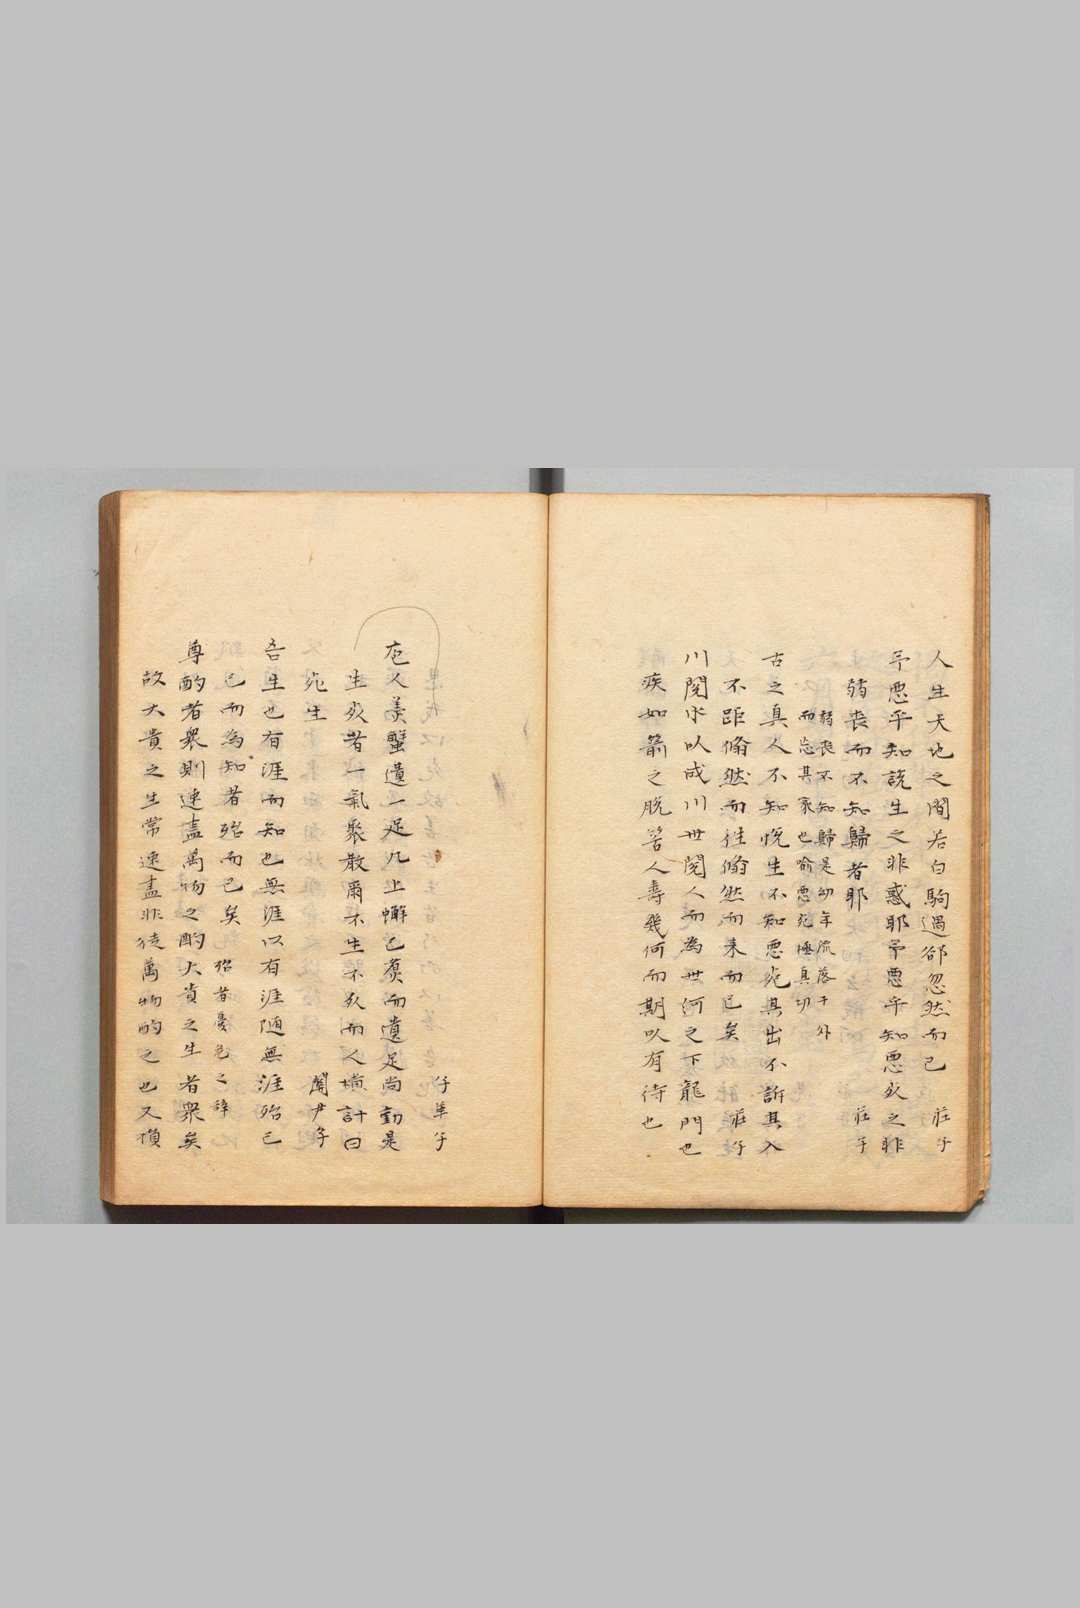 人生天地之間若白駒過郤忽然而已 莊子
予悪乎知説生之非惑耶予悪乎知悪死之非
弱喪而不知歸者耶 莊子
弱喪不知歸是幼年流落于外
而忘其家也喻悪死極真切
古之真人不知悦生不知悪死其出不訢其入
不距翛然而往翛然而来而已矣 莊子
川閲水以成川世閲人而為世河之下龍門也
疾如箭之脱筈人壽幾何而期以有待也
子華子
庖人羹蟹遺一足几上蟹已羹而遺足尚動是
生死者一氣聚散爾不生不死而人横計曰
死生 關尹子
吾生也有涯而知也無涯以有涯随無涯殆已
已而為知者殆而已矣 殆者憂危之辞
尊酌者衆則速盡萬物之酌大貴之生者衆矣
故大貴之生常速盡非徒萬物酌之也又損